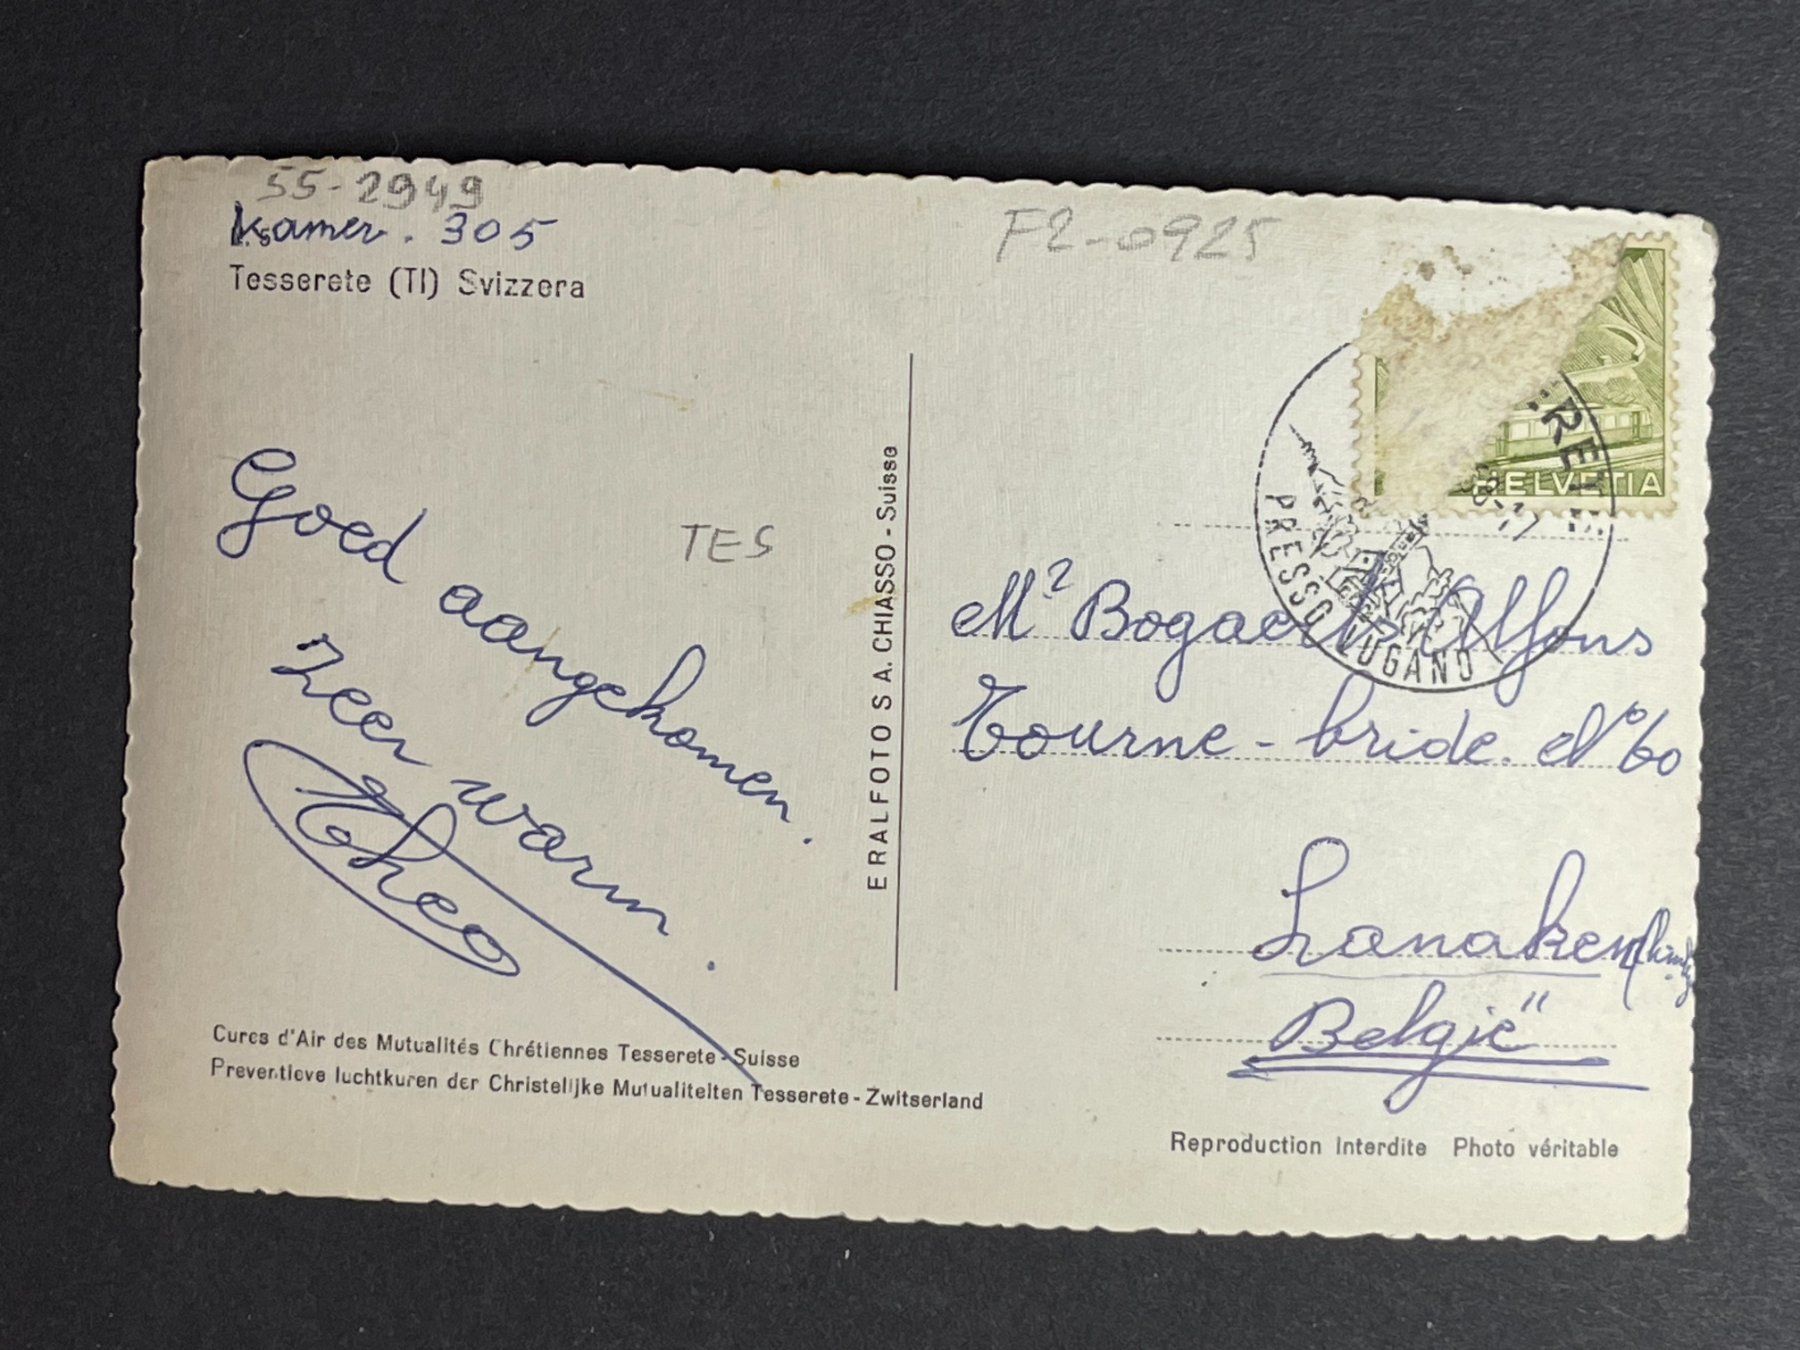 55-2949
Kamer. 305
Tesserete (TI) Svizzera
F2-0925
HELVETIA
PRESSO LUGANO
TES
Goed aangekomen.
Zeer warm.
Theo
ERALFOTO S A. CHIASSO - Suisse
Mr Bogaerts Alfons
Tourne-bride. No 60
Lanaken
België
Cures d'Air des Mutualités Chrétiennes Tesserete - Suisse
Preventieve luchtkuren der Christelijke Mutualiteiten Tesserete - Zwitserland
Reproduction interdite Photo véritable